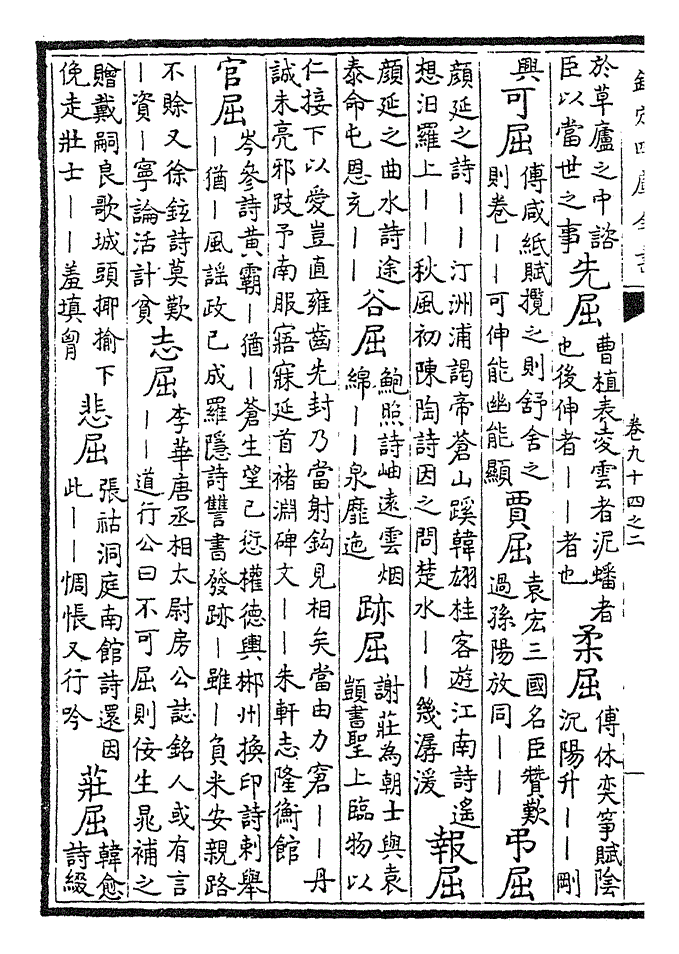 欽定四庫全書
卷九十四之二
一
於草廬之中諮
臣以當世之事
先屈
曹植表凌雲者泥蟠者
也後伸者——者也
柔屈
傅休奕箏賦陰
沉陽升——剛
興
可屈
傅咸紙賦攬之則舒舍之
則卷——可伸能幽能顯
賈屈
袁宏三國名臣贊歎
過孫陽放同——
弔屈
顏延之詩——汀洲浦謁帝蒼山蹊韓翃桂客遊江南詩遙
想汨羅上——秋風初陳陶詩因之問楚水——幾潺湲
報屈
顏延之曲水詩途
泰命屯恩充——
谷屈
鮑照詩岫遠雲烟
綿——泉靡迤
跡屈
謝莊為朝士與袁
顗書聖上臨物以
仁接下以愛豈直雍齒先封乃當射鈎見相矣當由力窘——丹
誠未亮邪跂予南服寤寐延首褚淵碑文——朱軒志隆衡館
官屈
岑參詩黃霸—猶—蒼生望已愆權德輿郴州換印詩剌舉
—猶—風謠政已成羅隱詩讐書發跡—雖—負米安親路
不賒又徐鉉詩莫歎
—資—寧論活計貧
志屈
李華唐丞相太尉房公誌銘人或有言
——道行公曰不可屈則佞生晁補之
贈戴嗣良歌城頭揶揄下
俛走壯士——羞填胷
悲屈
張祜洞庭南館詩還因
此——惆悵又行吟
莊屈
韓愈
詩綴